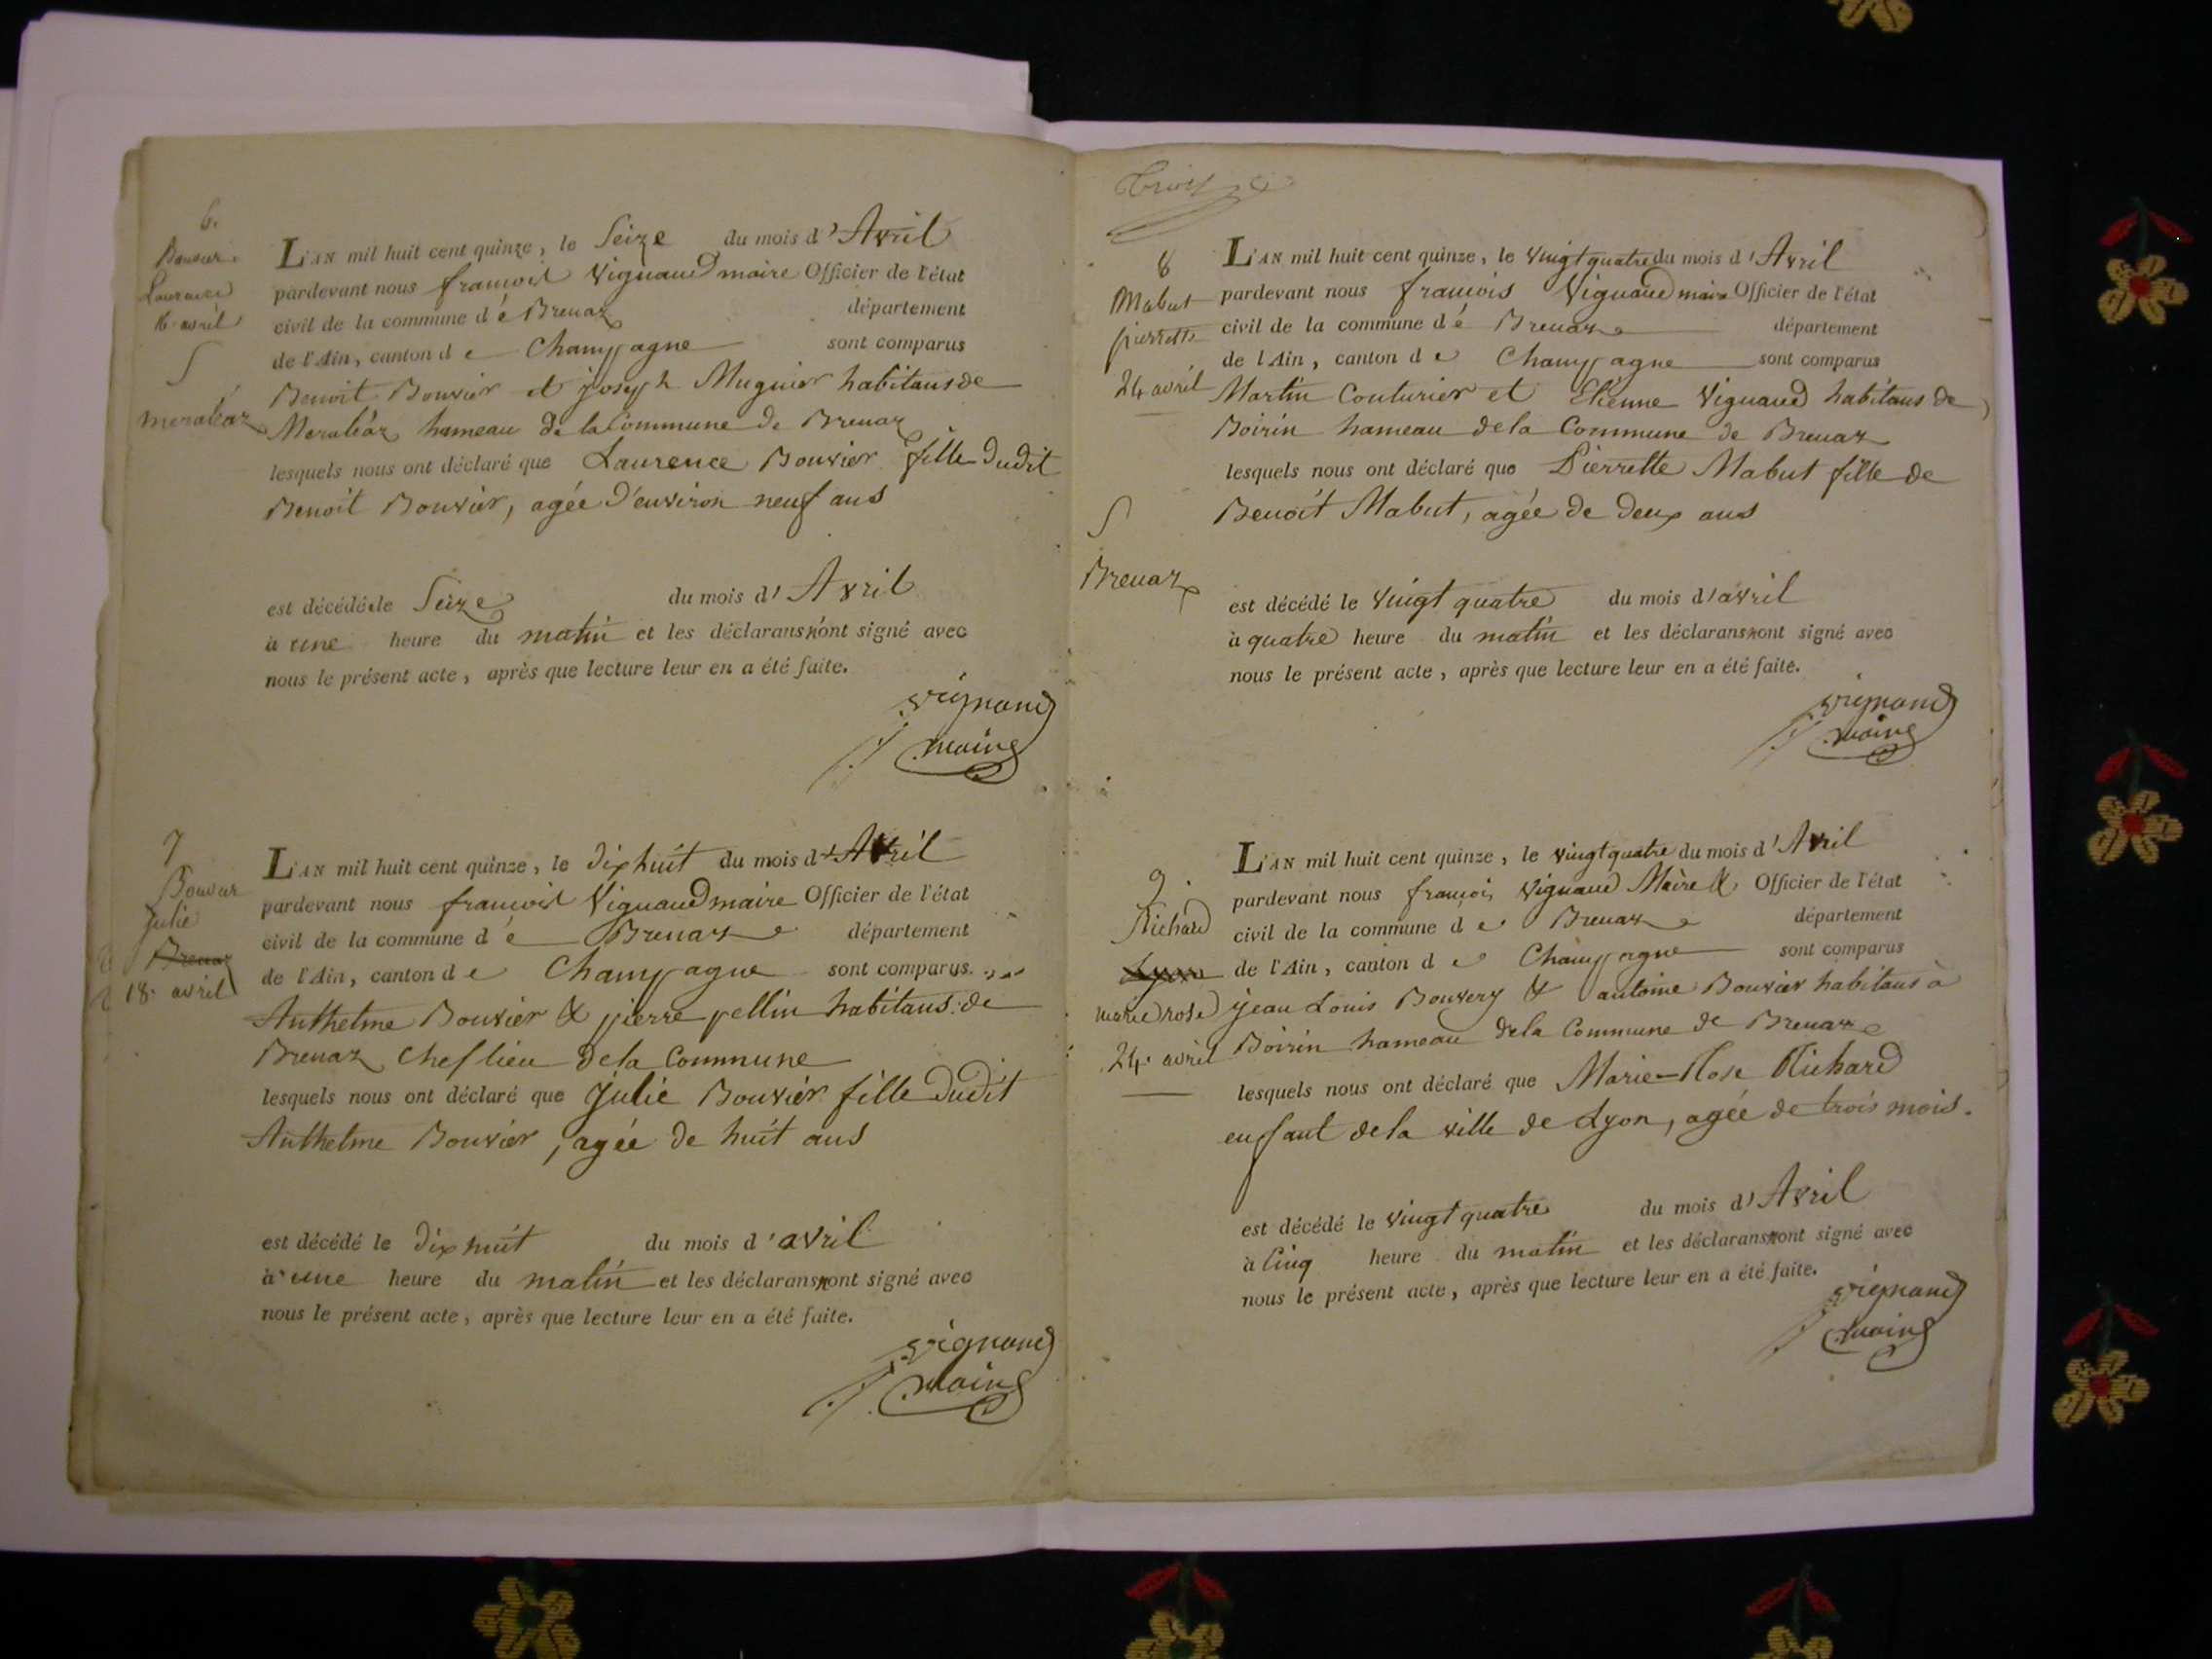 6.
Bouvier
Laurence
16 avril
Meraléaz
L'AN mil huit cent quinze, le Seize du mois d'Avril
pardevant nous francois Vignaud maire Officier de l'état
civil de la commune de Brenaz département
de l'Ain, canton de Champagne sont comparus
Benoit Bouvier et joseph Mugnier habitans de
Meraléaz hameau de la Commune de Brenaz
lesquels nous ont déclaré que Laurence Bouvier fille dudit
Benoit Bouvier, agée d'environ neuf ans
est décédée le Seize du mois d'Avril
à une heure du matin et les déclarans n'ont signé avec
nous le présent acte, après que lecture leur en a été faite.
Vignaud
maire
7
Bouvier
Julie
Brenaz
18. avril
L'AN mil huit cent quinze, le dix huit du mois d'Avril
pardevant nous francois Vignaud maire Officier de l'état
civil de la commune de Brenaz département
de l'Ain, canton de Champagne sont comparus
Anthelme Bouvier & pierre pellin habitans de
Brenaz chef lieu de la Commune
lesquels nous ont déclaré que Julie Bouvier fille dudit
Anthelme Bouvier, agée de huit ans
est décédé le dix huit du mois d'avril
à une heure du matin et les déclarans n'ont signé avec
nous le présent acte, après que lecture leur en a été faite.
Vignaud
maire
Trois
8
Mabut
pierrette
24 avril
Brenaz
L'AN mil huit cent quinze, le vingt quatre du mois d'Avril
pardevant nous francois Vignaud maire Officier de l'état
civil de la commune de Brenaz département
de l'Ain, canton de Champagne sont comparus
Martin Couturier et Etienne Vignaud habitans de
Boirin hameau de la Commune de Brenaz
lesquels nous ont déclaré que Pierrette Mabut fille de
Benoit Mabut, agée de deux ans
est décédé le vingt quatre du mois d'avril
à quatre heure du matin et les déclarans n'ont signé avec
nous le présent acte, après que lecture leur en a été faite.
Vignaud
maire
9.
Richard
Lyon
marie rose
24. avril
L'AN mil huit cent quinze, le vingt quatre du mois d'Avril
pardevant nous francois Vignaud Maire & Officier de l'état
civil de la commune de Brenaz département
de l'Ain, canton de Champagne sont comparus
jean Louis Bouvery & antoine Bouvier habitans à
Boirin hameau de la Commune de Brenaz
lesquels nous ont déclaré que Marie-Rose Richard
enfant de la ville de Lyon, agée de trois mois.
est décédé le vingt quatre du mois d'Avril
à Cinq heure du matin et les déclarans n'ont signé avec
nous le présent acte, après que lecture leur en a été faite.
Vignaud
maire